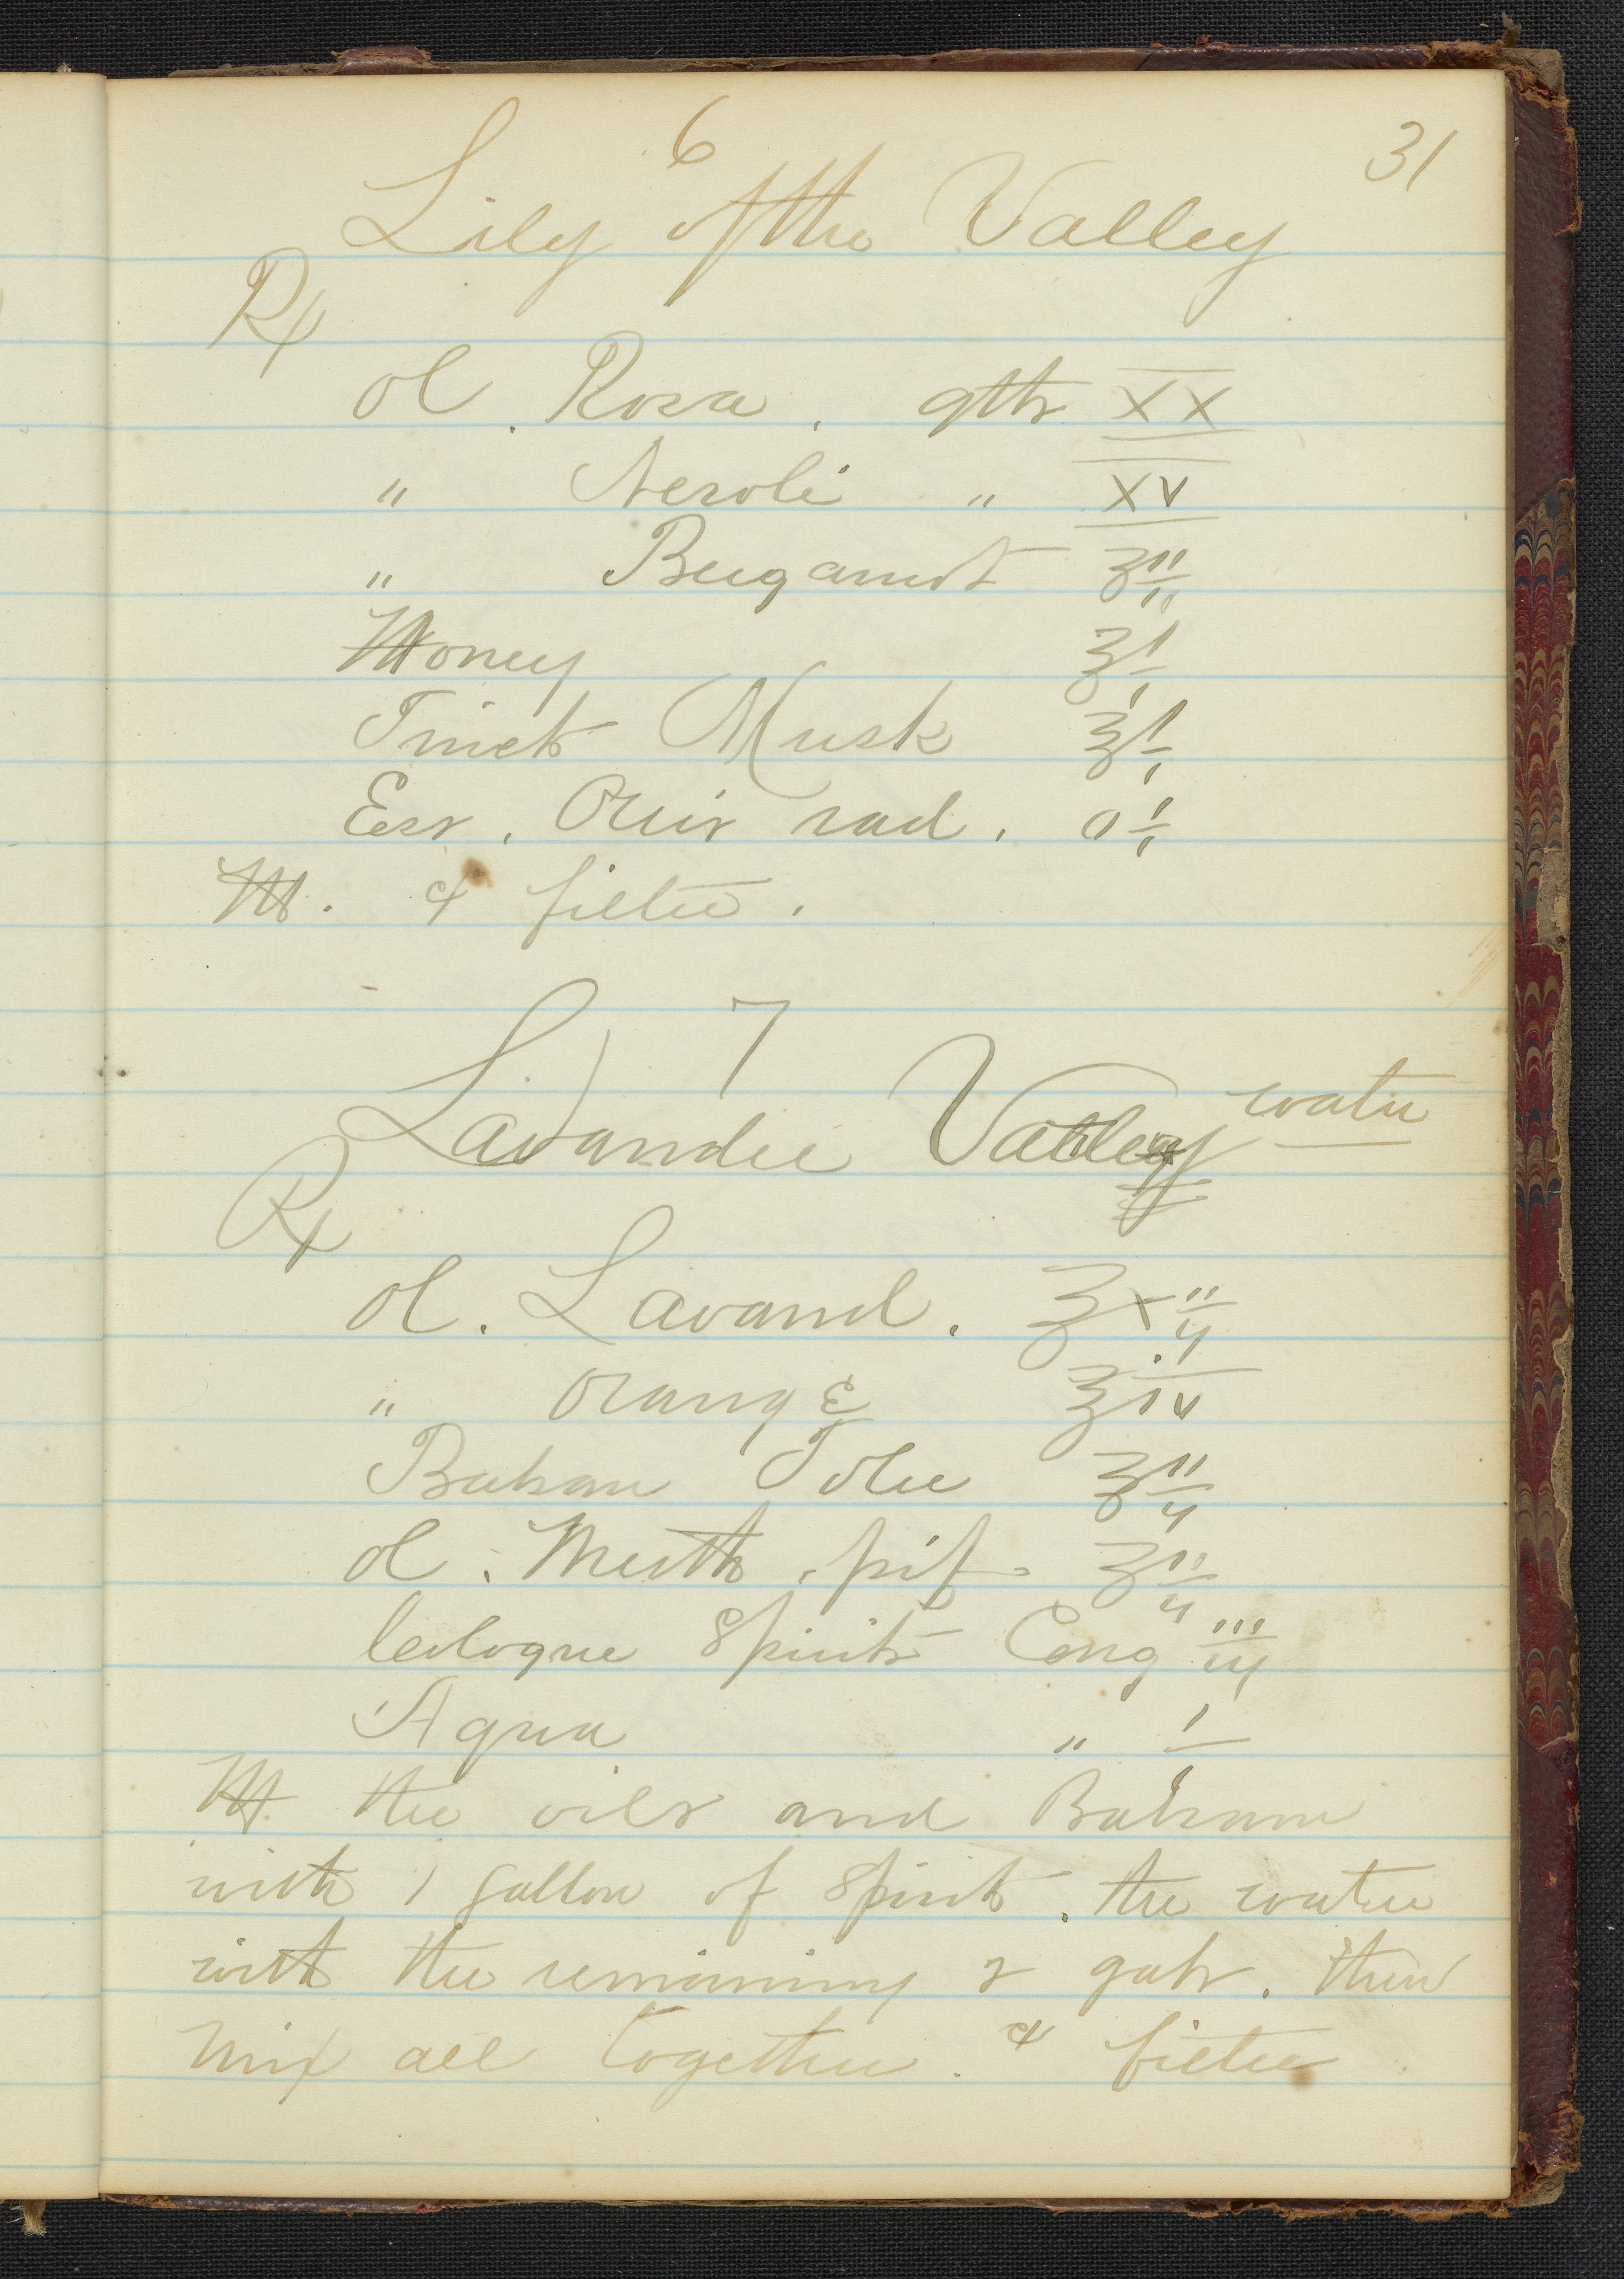 31
6
Lily of the Valley
Rx
Ol. Rosa. gtts XX
" Neroli " XV
" Bergamot ʒ ii
Honey ʒ i
Tinct Musk ʒ i
Ess. Orris rad. O i
M. & filter.
7
Lavander Valley water
Rx
Ol. Lavand. ℥ xii
" Orange ℥ iv
Balsam Tolu ʒ ii
Ol. Menth. pip. ʒ ii
Cologne Spirits Cong iii
Aqua " i
M the oils and Balsam
with 1 gallon of Spirits. the water
with the remaining 2 gals. then
mix all together. & filter